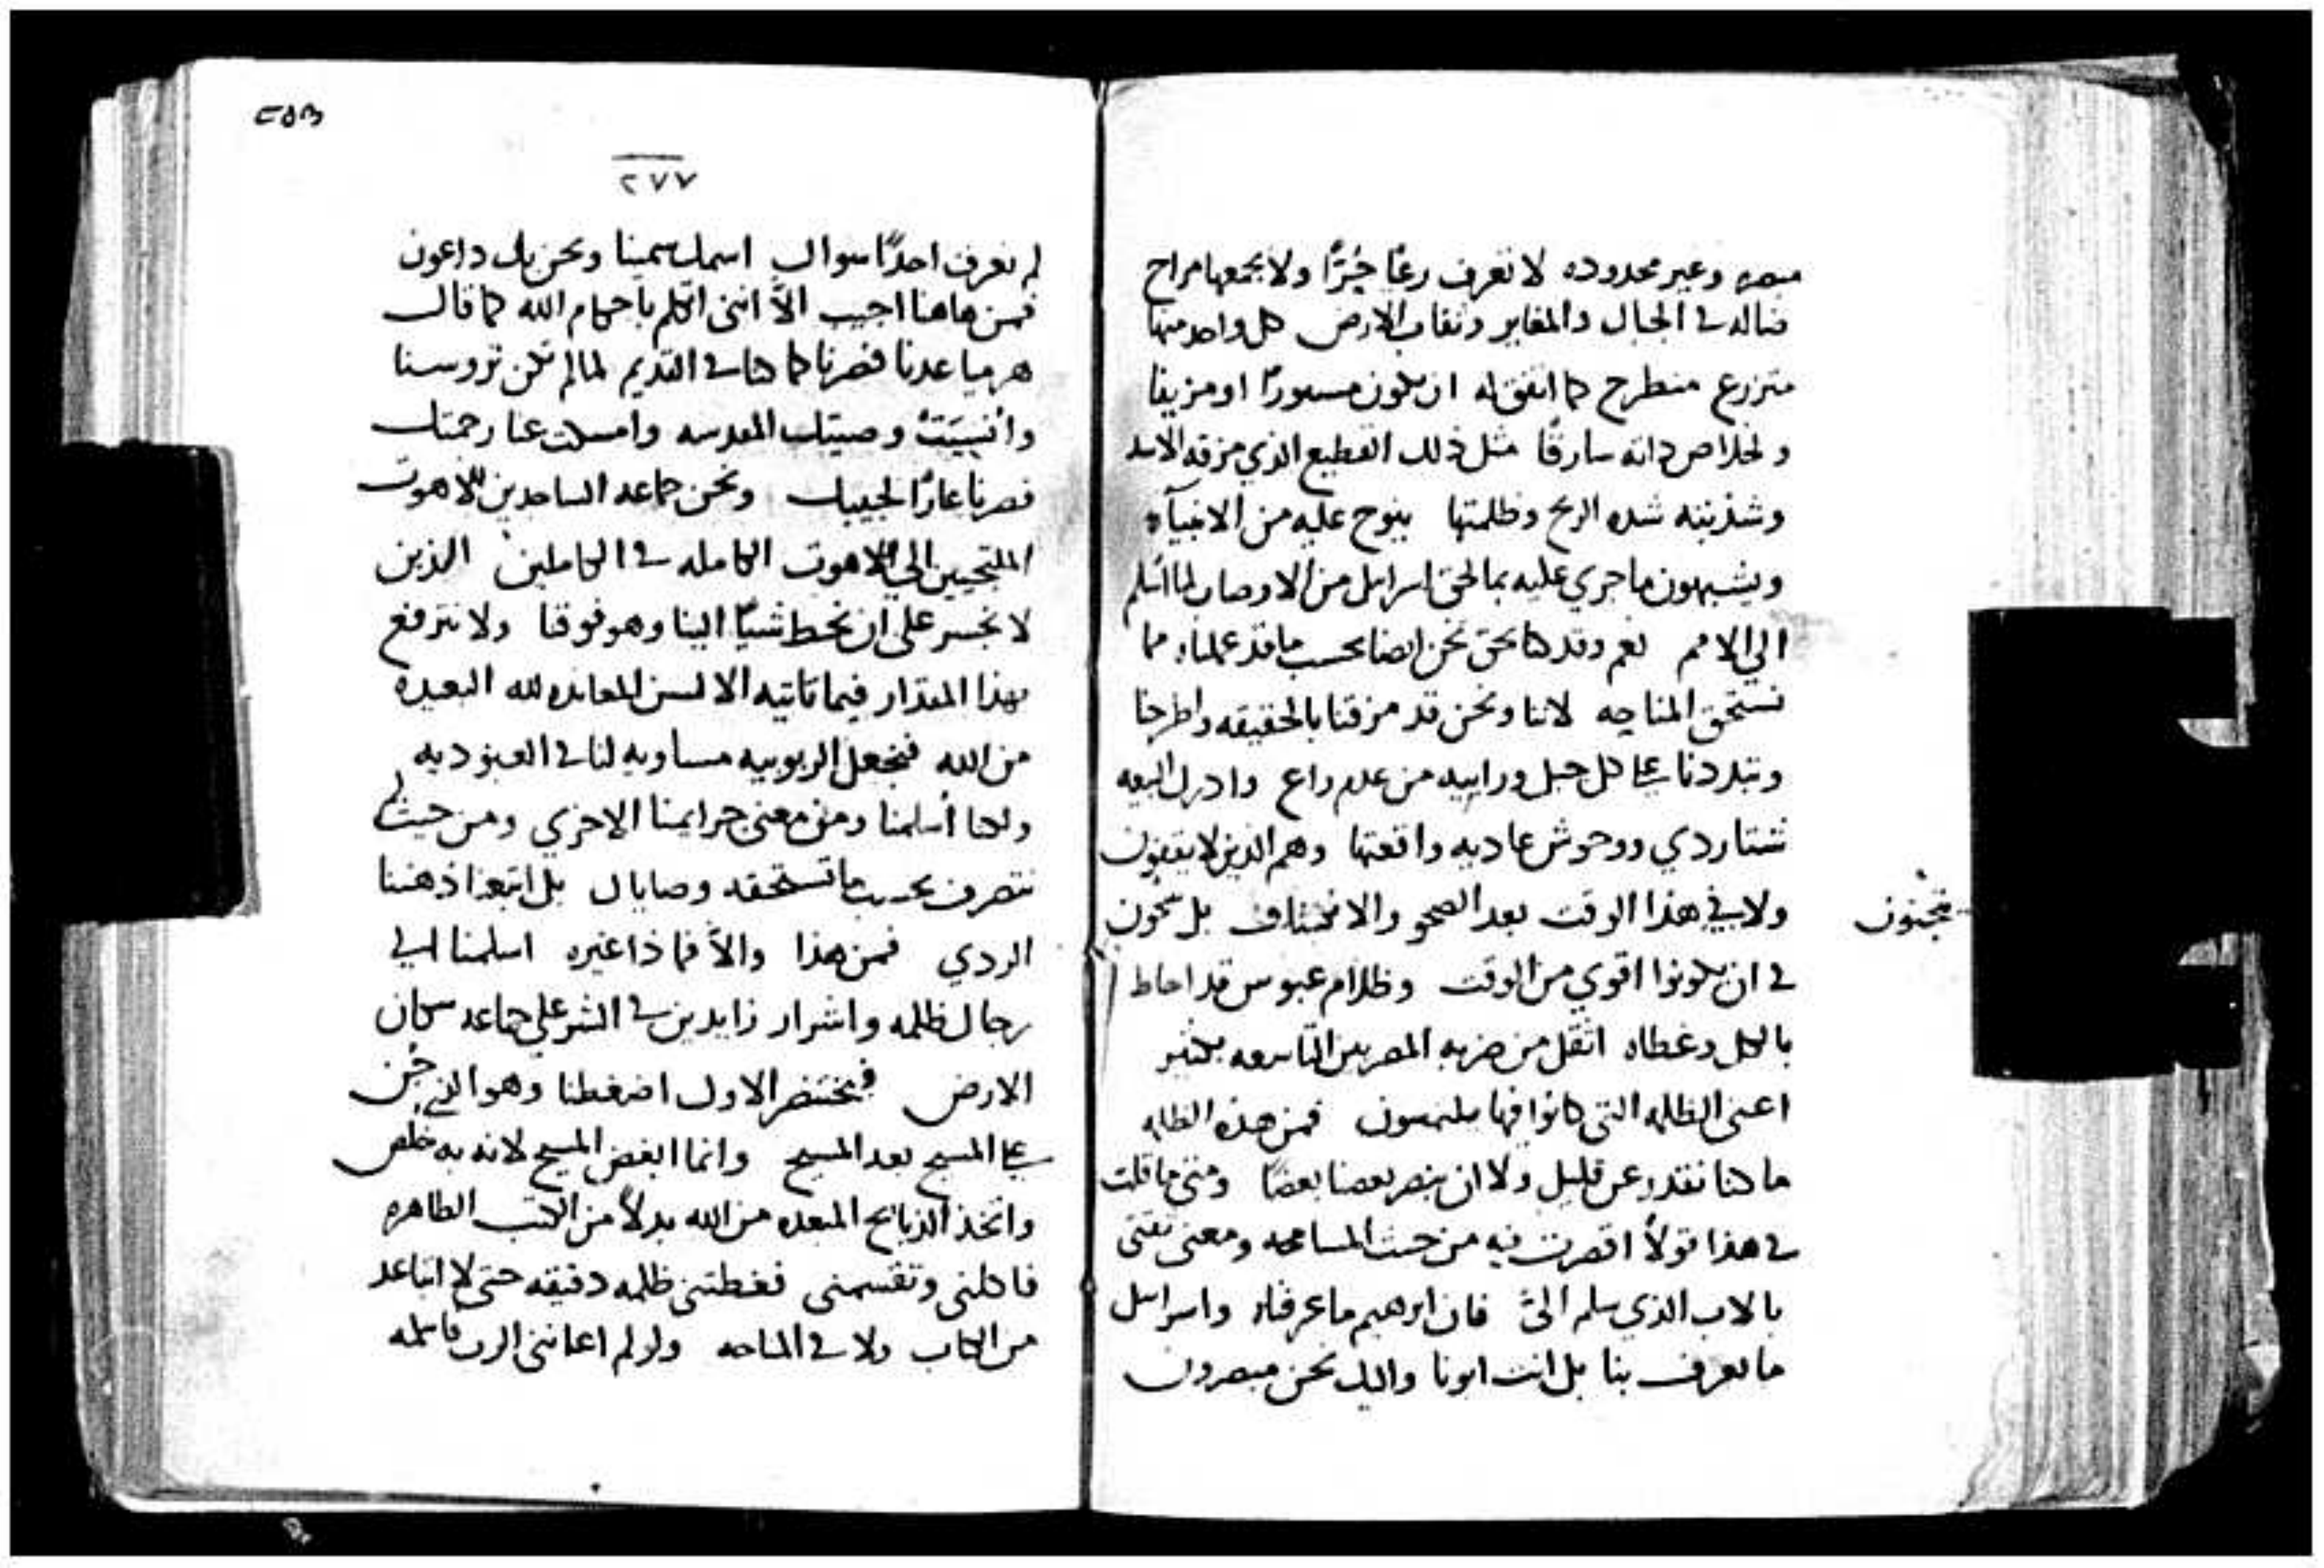 وغير محدوده لا تعرف رعيًا حيزًا ولا يجمعها مراح
ضاله في الجبال والمغاير ونقاب الارض كل واحد منها
متزرع منطرح كما اتفق له ان يكون او
ولخلاص ذاته سارقًا مثل ذلك القطيع الذي مزقه الاسد
وشذبته شده الريح وظلمتها ينوح عليه من الانبيآء
ويشبهون ما جري عليه بما لحق اسرايل من الاوصاب لما اسلم
الي الامم نعم وقد كنا نحن ايضا بحسب ما قد عملناه مما
نستحق المناحه لاننا ونحن قد مزقنا بالحقيقه واطرحنا
وتبددنا علي كل جبل ورابيه من عدم راع وادرك البيعه
شتا ردي ووحوش عاديه واقعتها وهم الذين لا يعفون
ولا في هذا الوقت بعد الصحو والانكشاف بل
يجبنون
في ان يكونوا اقوي من الوقت وظلام عبوس قد احاط
بالكل وغطاه اثقل من ضربه المصريين التاسعه بكثير
اعني الظلمه التي كانوا فيها فمن هذه الظلمه
ما كنا نقدر عن قليل ولا ان يبصر بعضنا بعضًا ومتي ما قلت
في هذا قولاً اقصرت فيه من حيث المسامحه ومعني ثقتي
بالاب الذي سلم اليّ فان ابرهيم ما عرفناه واسرايل
ما تعرف بنا بل انت ابونا واليك نحن مبصرون
٢٥٣
٢٧٧
لم نعرف احدًا سواك اسمك سمينا ونحن بك داعون
فمن هاهنا اجيب الاّ انني اتكلم باحكام الله كما قال
هرميا عدنا فصرنا كما كنا في القديم لما لم تكن تروسنا
وانسيت وصيتك المقدسه وامسكت عنا رحمتك
فصرنا عارًا لحبيبك ونحن جماعه الساجدين للاهوت
الملتجيين الي اللاهوت الكامله في الكاملين الذين
لا نجسر علي ان نحط شيًا الينا وهو فوقنا ولا نترفع
بهذا المقدار فيما تاتيه الالسن المعانده لله البعيده
من الله فنجعل الربوبيه مساويه لنا في العبوديه
ولكنا أسلمنا ومن معني جرايمنا الاخري ومن حيث لم
نتصرف بحسب ما تستحقه وصاياك بل اتبعنا ذهننا
الردي فمن هذا والاّ فماذا غيره اسلمنا الي
رجال ظلمه واشرار زايدين في الشر علي جماعه سكان
الارض فبختنصر الاول اضغطنا وهو الذي جُن
علي المسيح بعد المسيح وانما ابغض المسيح لانه به خلص
واتخذ الذبايح المبعده من الله بدلاً من الكتب الطاهره
فاكلني وتقسمني فغطتني ظلمه دقيقه حتي لا اتباعد
من الكتاب ولا في المناحه ولو لم اعانني الرب